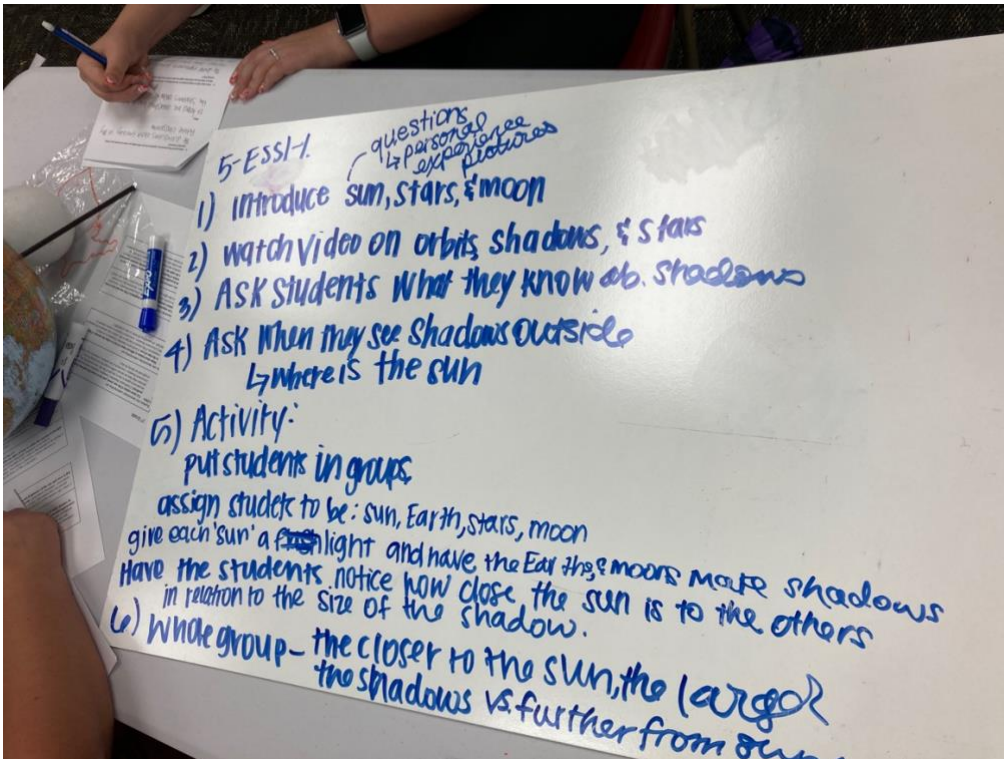 5-ESS1-1.
questions
↳ personal
experience
pictures
1) introduce sun, stars, & moon
2) watch video on orbits, shadows, & stars
3) Ask students what they know ab. shadows
4) Ask when they see shadows outside
↳ where is the sun
5) Activity:
put students in groups
assign studets to be: sun, Earth, stars, moon
give each 'sun' a light and have the Earths, & moons make shadows
Have the students notice how close the sun is to the others
in relation to the size of the shadow.
6) Whole group - the closer to the sun, the larger
the shadows vs. further from
EXPO